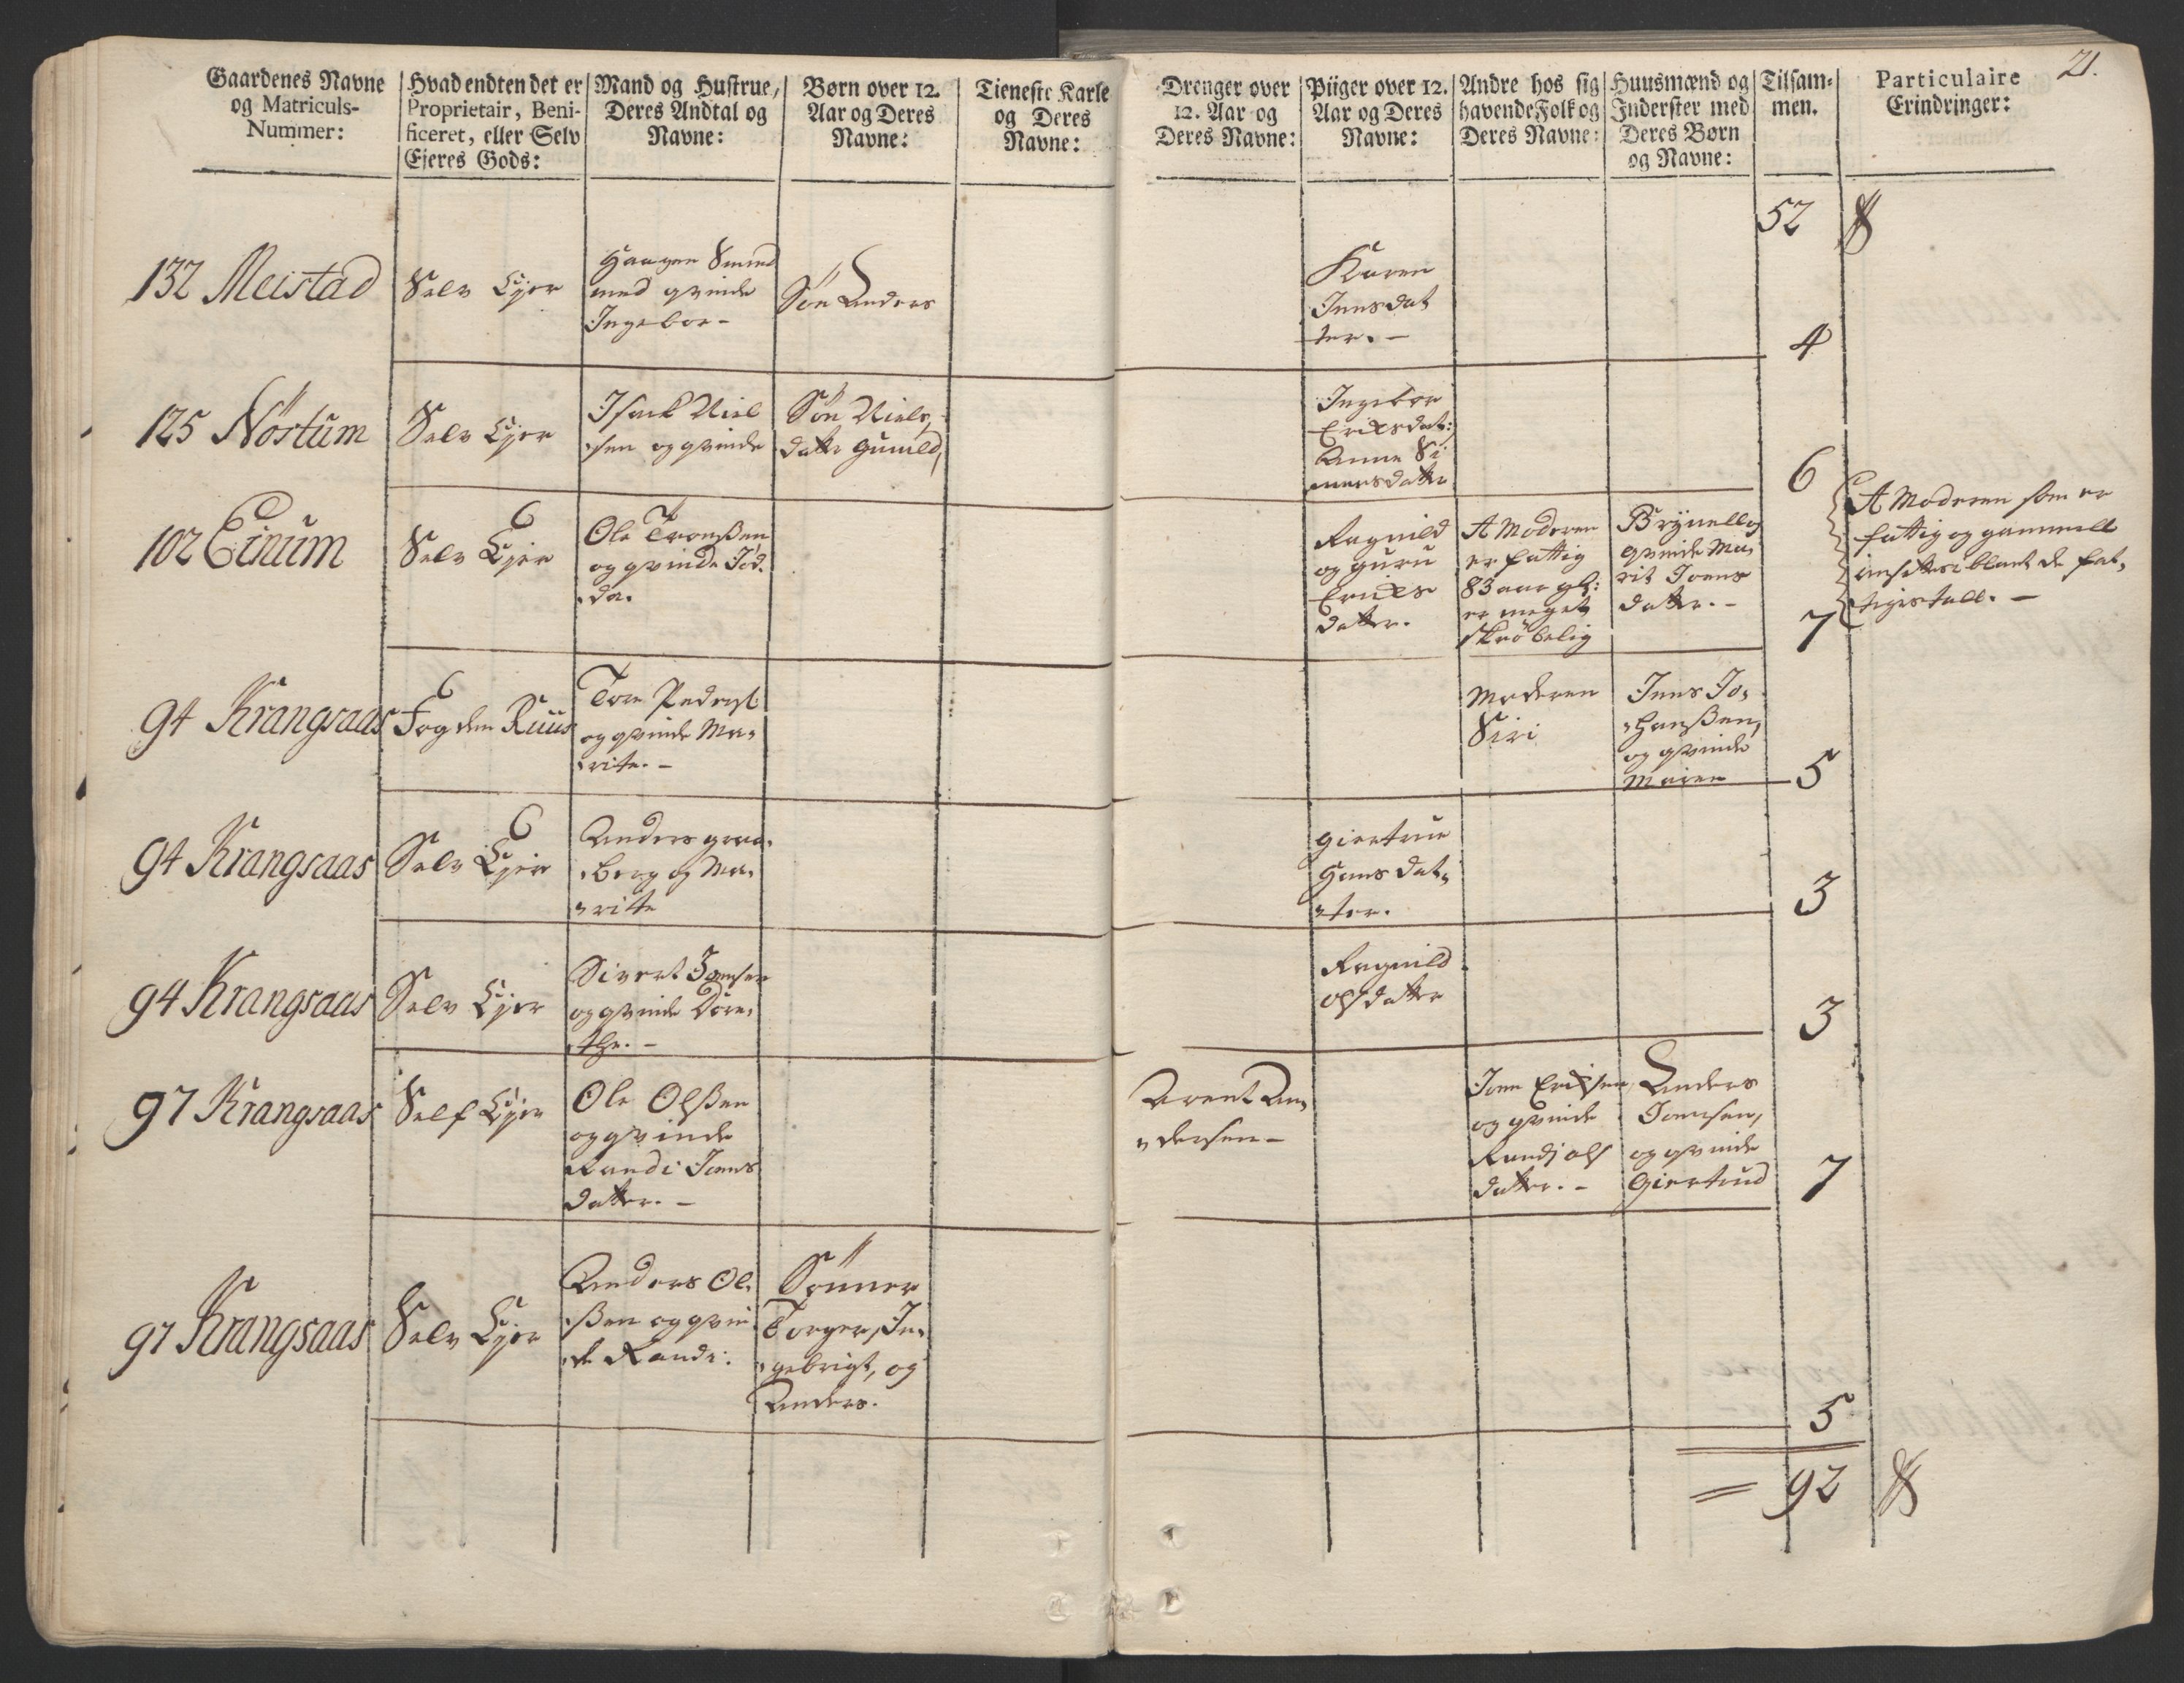 21.
Gaardenes Navne
og Matriculs-
Nummer:
Hvad endten det er
Proprietair, Beni-
ficeret, eller Selv
Ejeres Gods:
Mand og Hustrue,
Deres Andtal og
Navne:
Børn over 12.
Aar og Deres
Navne:
Tieneste Karle
og Deres
Navne:
Drenger over
12. Aar og
Deres Navne:
Piiger over 12.
Aar og Deres
Navne:
Andre hos sig
havende Folk og
Deres Navne:
Huusmænd og
Inderster med
Deres Børn
og Navne:
Tilsam-
men.
Particulaire
Erindringer:
52
132 Meistad
Selv Ejer
Haagen
med qvinde
Ingebor-
Søn Anders
Karen
Jensdat
ter. -
4
125 Nöstum
Selv Ejer
Isack Niel
sen og qvinde
Søn Niels,
datter Gunild,
Ingebor
Erichsdat:
Anne Si
mensdatter
6
102 Einum
Selv Ejer
Ole Tronßen
og qvinde Jö.
da.
Ragnild
og Guru
Erichs
datter.
A Moderen
er fattig
83 aar gl:
er meget
skröbelig
Brynell og
qvinde Ma,
rit Joens
datter. -
7
A Moderen som er
fattig og gammell
ansettes iblant de fat,
tiges tall. -
94 Krangsaas
Fogden Ruus
Tore Peders:
og qvinde Ma,
rite. -
Moderen
Siri
Jens Jo,
hanßen,
og qvinde
Maren
5
94 Krangsaas
Selv Ejer
Anders Graa,
berg og Ma,
ritte
Giertrue
Hans dat,
ter.
3
94 Krangsaas
Selv Ejer
Sivert Joensen
og qvinde Dore,
the. -
Ragnild
Olsdatter
3
97 Krangsaas
Self Ejer
Ole Olßen
og qvinde
Randi Joens
datter. -
Arent An,
dersen -
Joen Erichsen,
og qvinde
Randj Ols
datter. -
Anders
Joensen,
og qvinde
Giertrud
7
97 Krangsaas
Selv Ejer
Anders Ol,
ßen og qvin
de Randi.
Sönner
Torger, In,
gebrigt, og
Anders.
5
= 92